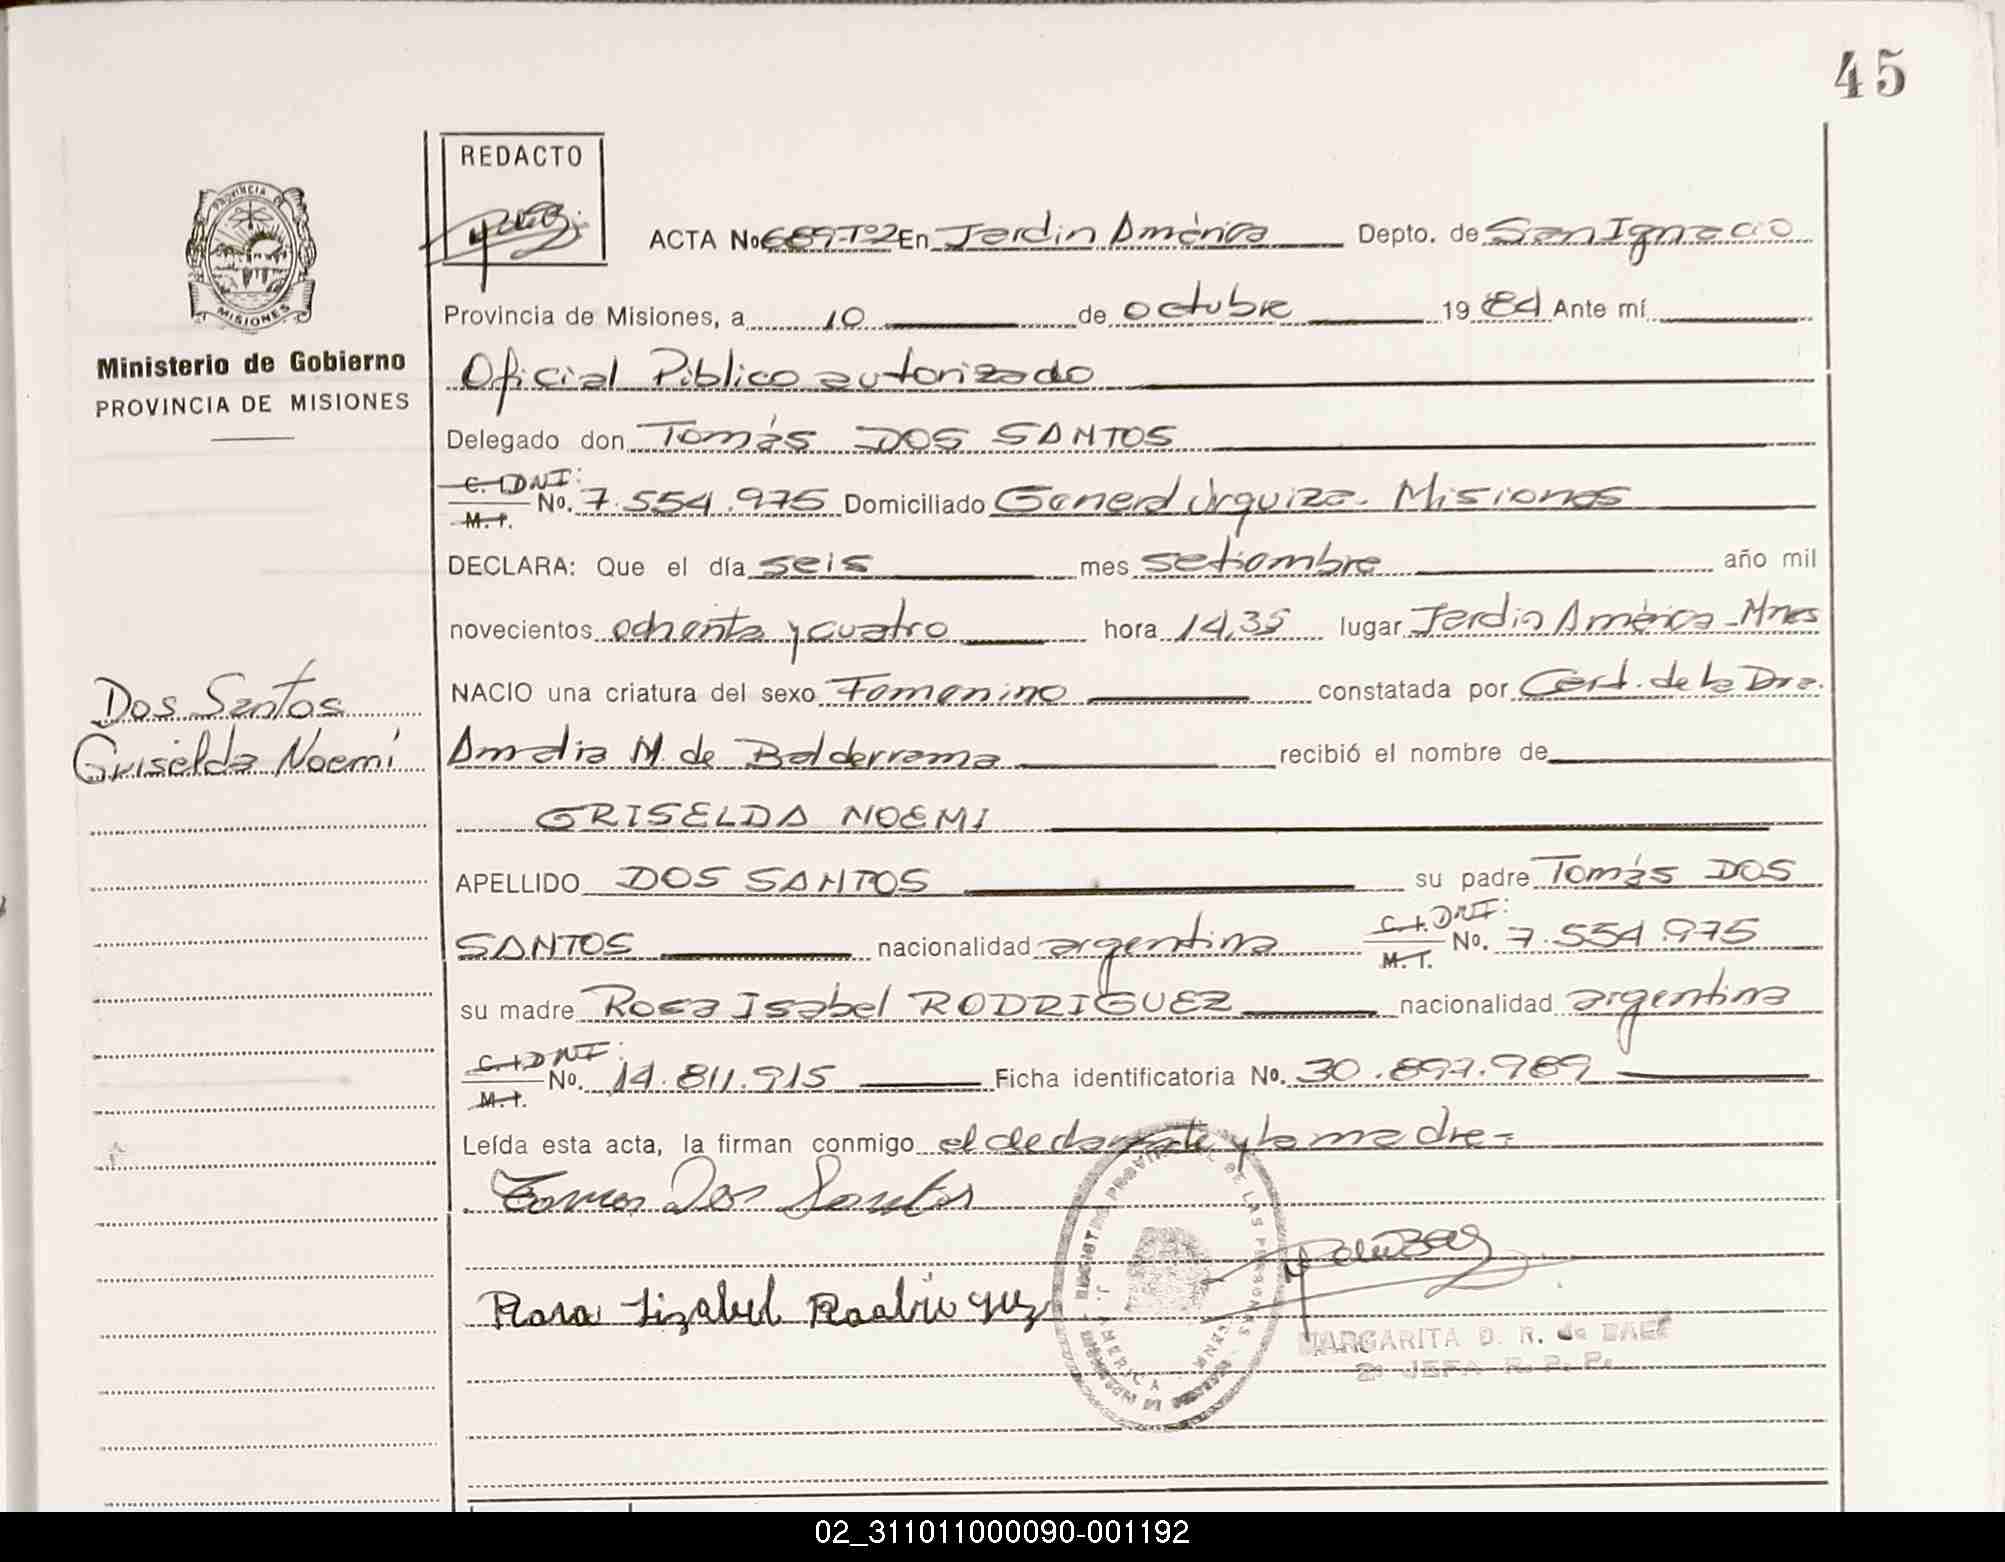 45
REDACTO
ACTA No 689-Tº2 En Jardín América Depto. de San Ignacio
Provincia de Misiones, a 10 de octubre 1984 Ante mí
PROVINCIA DE MISIONES
Ministerio de Gobierno
PROVINCIA DE MISIONES
Oficial Público autorizado
Delegado don Tomás DOS SANTOS
C. I. DNI: M. I. No. 7.554.975 Domiciliado General Urquiza. Misiones
DECLARA: Que el día seis mes setiembre año mil
novecientos ochenta y cuatro hora 14,35 lugar Jardín América - Mnes
Dos Santos
Griselda Noemí
NACIO una criatura del sexo Femenino constatada por Cert. de la Dra.
Amalia M. de Balderrama recibió el nombre de
GRISELDA NOEMI
APELLIDO DOS SANTOS su padre Tomás DOS
SANTOS nacionalidad argentina C. I. DNI: M. I. No. 7.554.975
su madre Rosa Isabel RODRIGUEZ nacionalidad argentina
C. I. DNI: M. I. No. 14.811.915 Ficha identificatoria No. 30.897.989
Leída esta acta, la firman conmigo el declarante y la madre=
Tomas Dos Santos
Rosa Lizabel Rodriguez
MARGARITA D. R. de BAEZ
2º JEFA R. P. P.
02_311011000090-001192